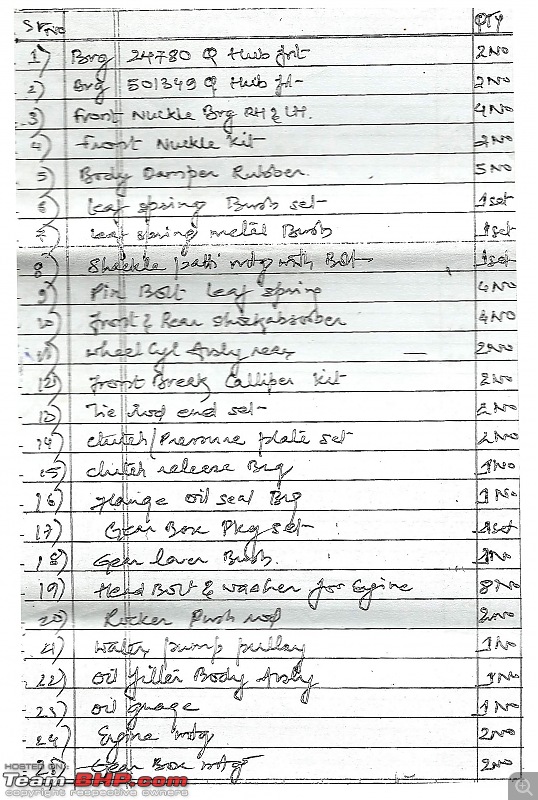 Sr No QTY
1) Brg 24780 Q Hub frt 2 No
2) Brg 501349 Q Hub frt 2 No
3) Front Nuckle Brg RH & LH. 4 No
4) Front Nuckle Kit 2 No
5) Body Damper Rubber. 5 No
6) Leaf spring Bush set 1 set
7) Leaf spring metal Bush 1 set
8) Shackle patti mtg with Bolt 1 set
9) Pin Bolt Leaf spring 4 No
10) Front & Rear Shockabsorber 4 No
11) wheel Cyl Assly rear 2 No
12) Front Break Calliper Kit 2 No
13) Tie rod end set 2 No
14) clutch/Pressure plate set 2 No
15) clutch release Brg 1 No
16) Flange oil seal Brg 1 No
17) Gear Box Pkg set 1 set
18) Gear lever Bush. No
19) Head Bolt & washer for Engine 8 No
20) Rocker Push rod 2 No
21) water pump pulley 1 No
22) oil filler Body Assly 1 No
23) oil guage 1 No
24) Engine mtg 2 No
25) Gear Box mtg 2 No
HOSTED ON:
Team-BHP.com
copyright respective owners